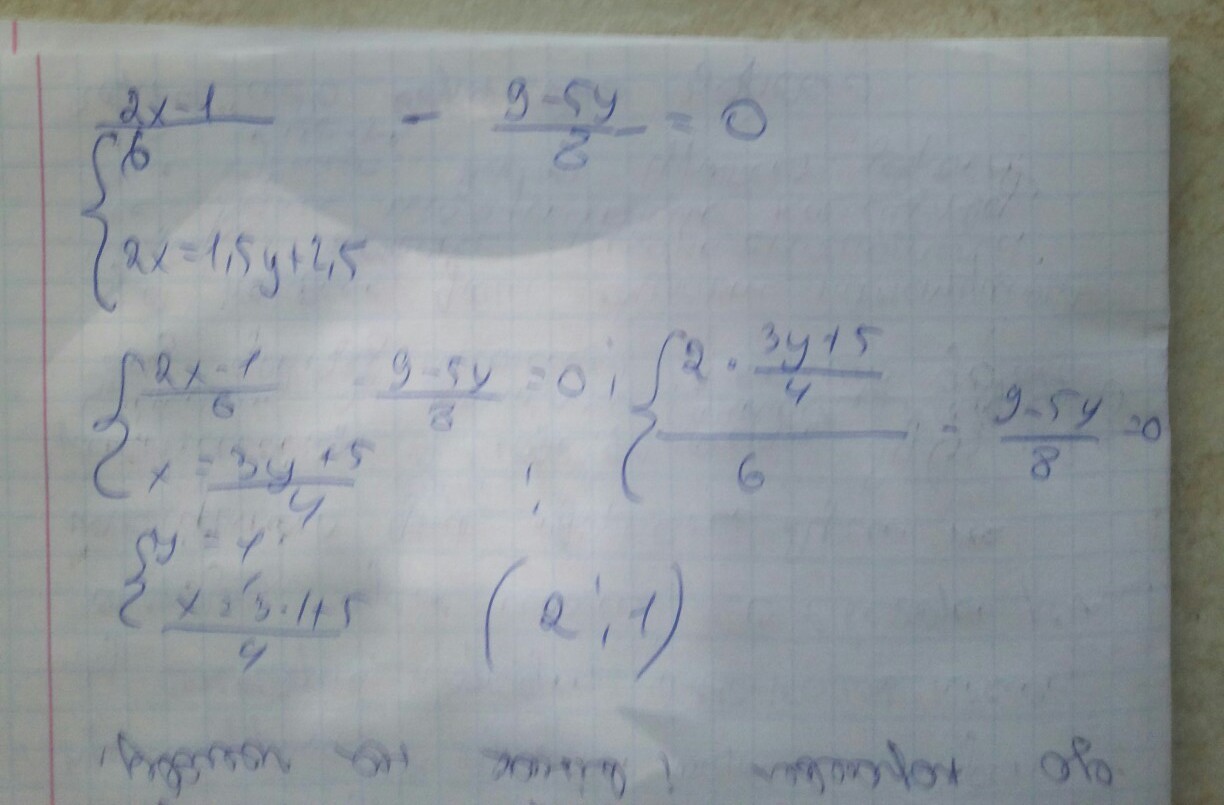 2x-1 / 6 - 9-5y / 8 = 0
2x=1,5y+2,5
{ 2x-1 / 6 - 9-5y / 8 = 0 ; { 2 · 3y+5 / 4 / 6 - 9-5y / 8 = 0
x = 3y+5 / 4 ;
{ y = 1
x = 3·1+5 / 4 (2 ; 1)